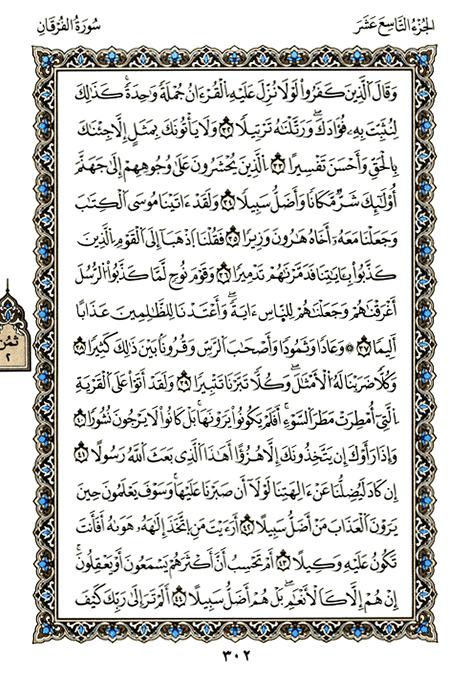 الجُزْءُ التَّاسِعَ عَشَرَ
سُورَةُ الفُرْقَانِ
وَقَالَ الَّذِينَ كَفَرُوا لَوْلَا نُزِّلَ عَلَيْهِ الْقُرْءَانُ جُمْلَةً وَاحِدَةً كَذَلِكَ
لِنُثَبِّتَ بِهِ فُؤَادَكَ وَرَتَّلْنَاهُ تَرْتِيلًا ٣٢ وَلَا يَأْتُونَكَ بِمَثَلٍ إِلَّا جِئْنَاكَ
بِالْحَقِّ وَأَحْسَنَ تَفْسِيرًا ٣٣ الَّذِينَ يُحْشَرُونَ عَلَى وُجُوهِهِمْ إِلَى جَهَنَّمَ
أُوْلَئِكَ شَرٌّ مَّكَانًا وَأَضَلُّ سَبِيلًا ٣٤ وَلَقَدْ ءَاتَيْنَا مُوسَى الْكِتَبَ
وَجَعَلْنَا مَعَهُ أَخَاهُ هَارُونَ وَزِيرًا ٣٥ فَقُلْنَا اذْهَبَا إِلَى الْقَوْمِ الَّذِينَ
كَذَّبُوا بِـَٔايَاتِنَا فَدَمَّرْنَهُمْ تَدْمِيرًا ٣٦ وَقَوْمَ نُوحٍ لَّمَّا كَذَّبُوا الرُّسُلَ
أَغْرَقْنَهُمْ وَجَعَلْنَاهُمْ لِلنَّاسِ ءَايَةً وَأَعْتَدْنَا لِلظَّالِمِينَ عَذَابًا
أَلِيمًا ٣٧ ۞ وَعَادًا وَثَمُودًا وَأَصْحَابَ الرَّسِّ وَقُرُونًا بَيْنَ ذَالِكَ كَثِيرًا ٣٨
وَكُلًّا ضَرَبْنَا لَهُ الْأَمْثَلَ وَكُلًّا تَبَّرْنَا تَتْبِيرًا ٣٩ وَلَقَدْ أَتَوْا عَلَى الْقَرْيَةِ
الَّتِي أُمْطِرَتْ مَطَرَ السَّوْءِ أَفَلَمْ يَكُونُوا يَرَوْنَهَا بَلْ كَانُوا لَا يَرْجُونَ نُشُورًا ٤٠
وَإِذَا رَأَوْكَ إِن يَتَّخِذُونَكَ إِلَّا هُزُؤًا أَهَذَا الَّذِي بَعَثَ اللَّهُ رَسُولًا ٤١
إِن كَادَ لَيُضِلُّنَا عَنْ ءَالِهَتِنَا لَوْلَا أَن صَبَرْنَا عَلَيْهَا وَسَوْفَ يَعْلَمُونَ حِينَ
يَرَوْنَ الْعَذَابَ مَنْ أَضَلُّ سَبِيلًا ٤٢ أَرَءَيْتَ مَنِ اتَّخَذَ إِلَهَهُ هَوَىهُ أَفَأَنتَ
تَكُونُ عَلَيْهِ وَكِيلًا ٤٣ أَمْ تَحْسِبُ أَنَّ أَكْثَرَهُمْ يَسْمَعُونَ أَوْ يَعْقِلُونَ
إِنْ هُمْ إِلَّا كَالْأَنْعَمِ بَلْ هُمْ أَضَلُّ سَبِيلًا ٤٤ أَلَمْ تَرَ إِلَى رَبِّكَ كَيْفَ
ثُمُن
٢
٣٠٢